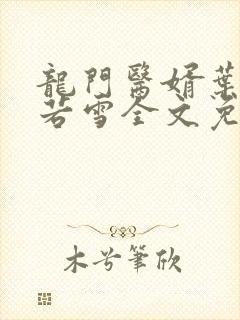 龍門醫婿葉
若雪全文免
木兮筆欣